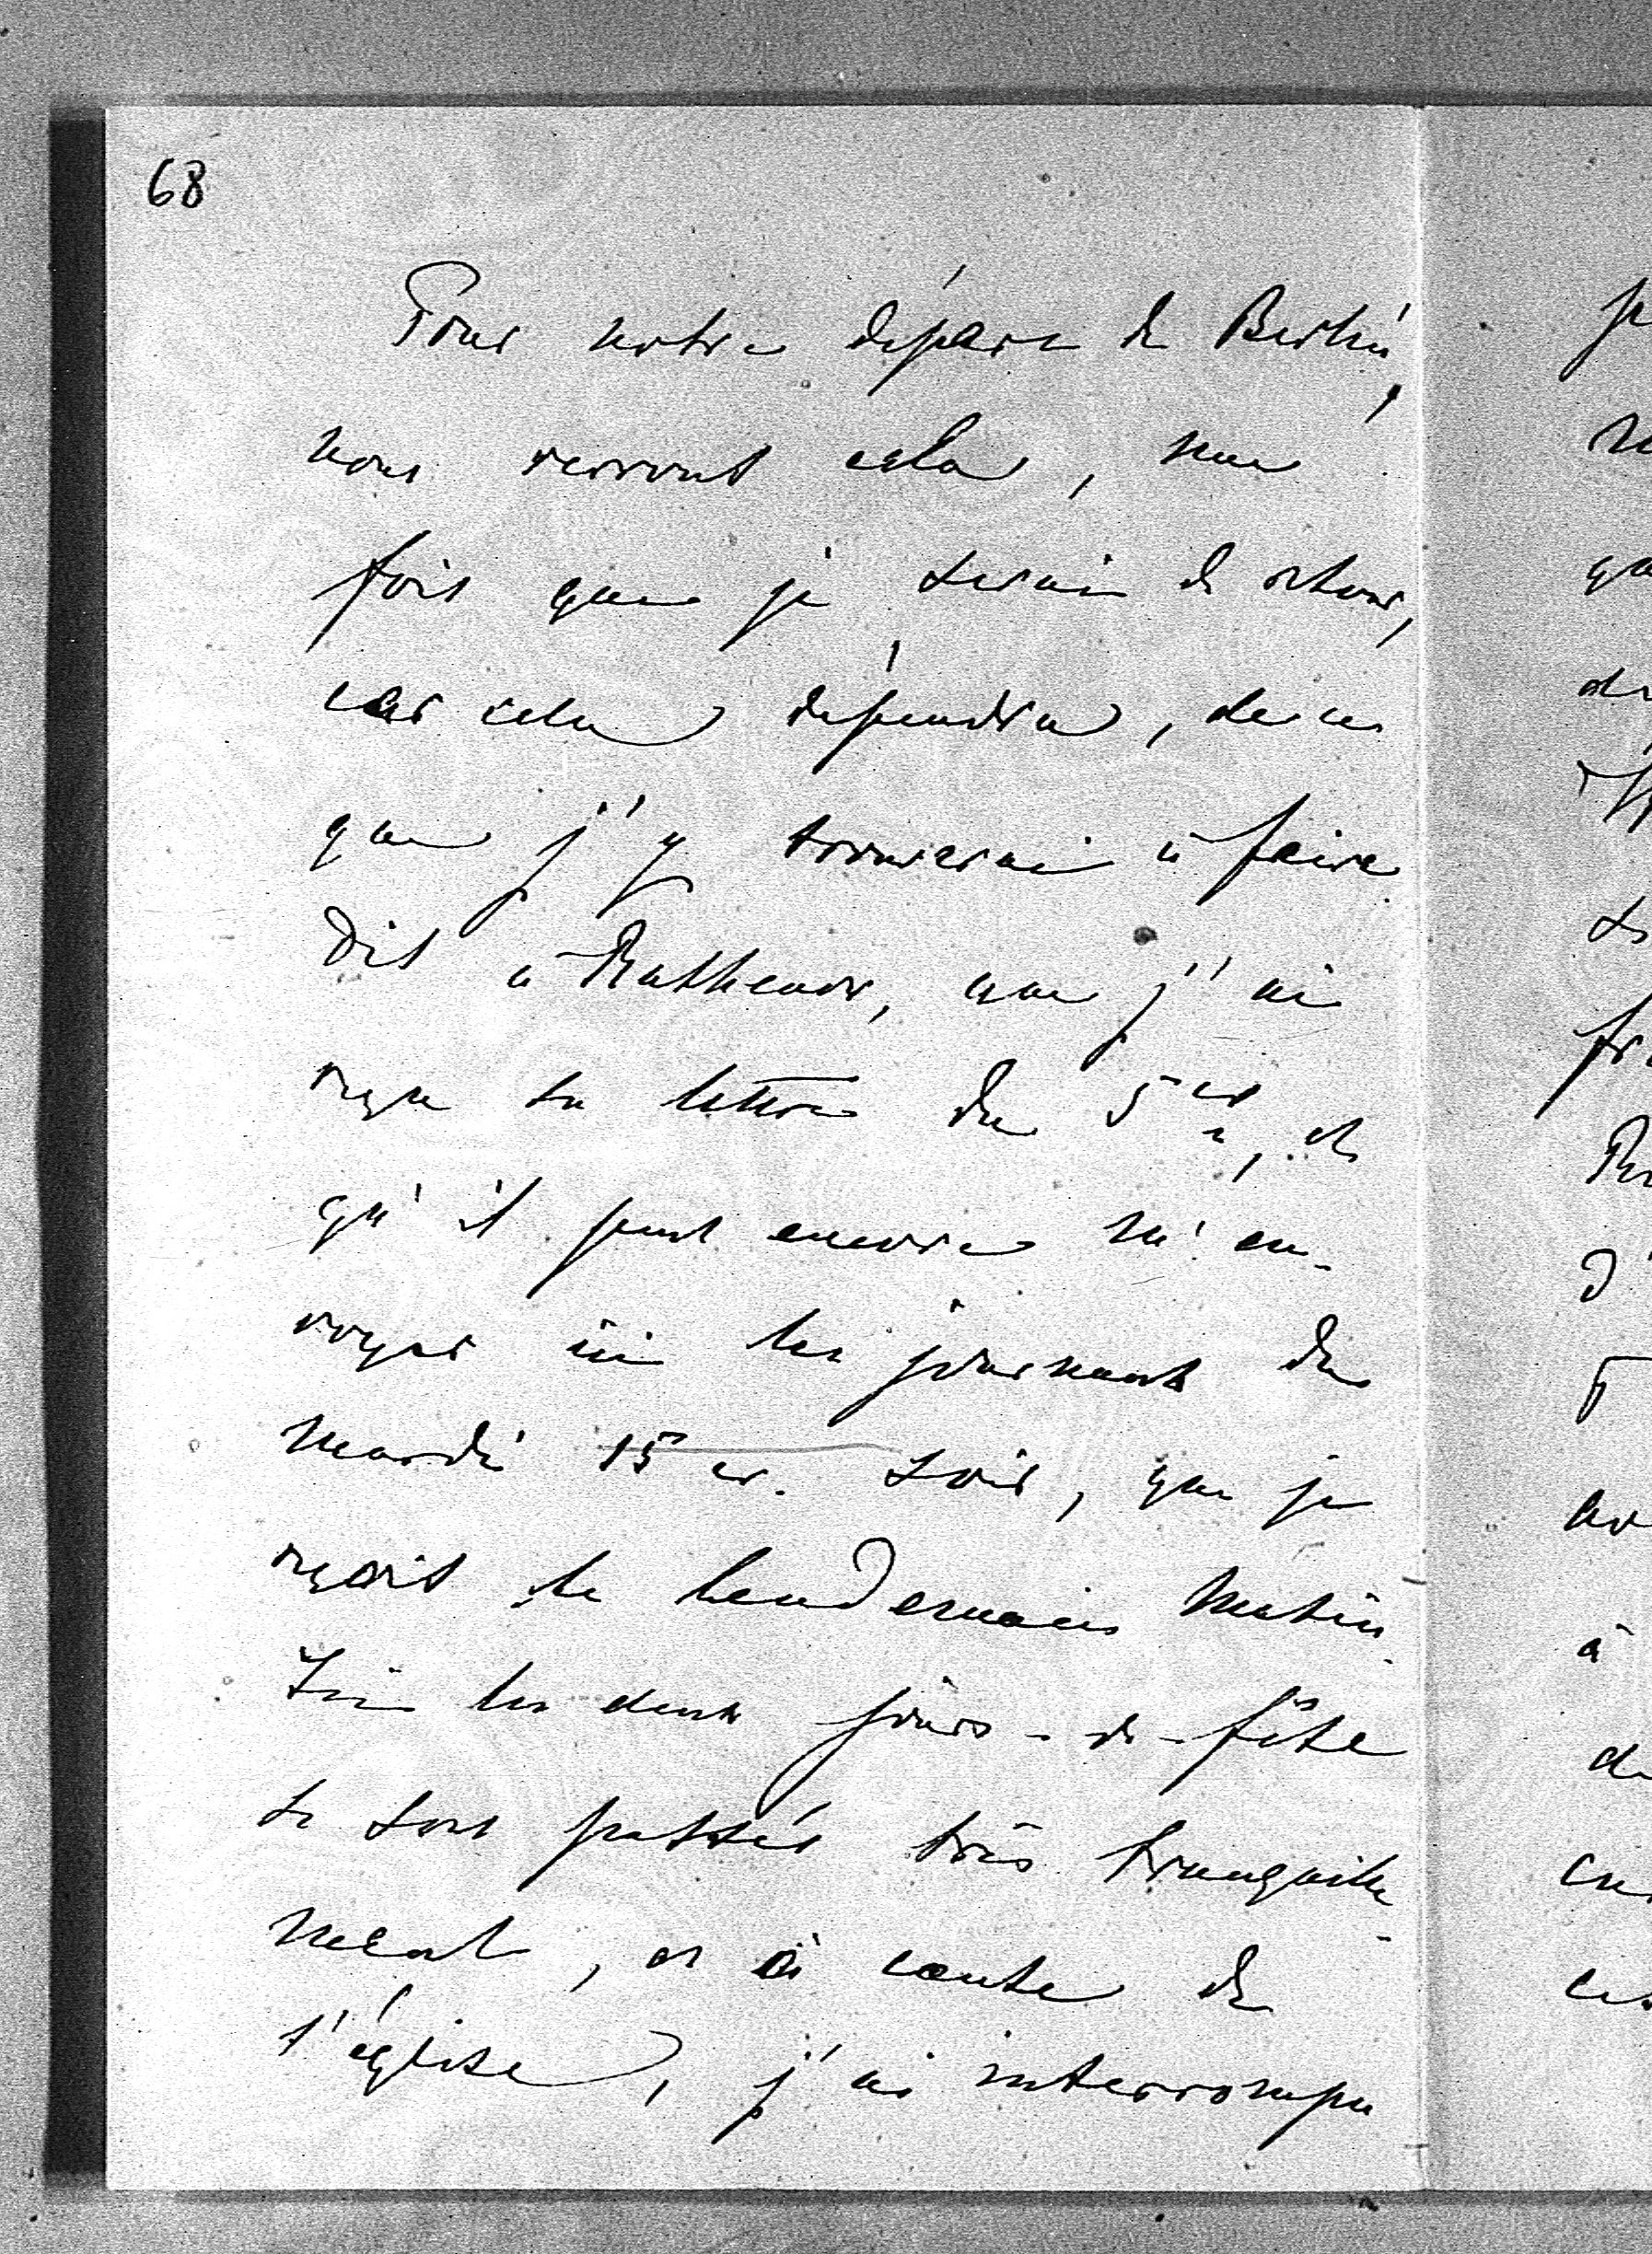 68
Pour notre départ de Berlin,
nous verront cela, une
fois que je serai de retour,
car cela dépendra, de ce
que j'y trouverai à faire.
Dit à Rathenow, que j'ai
reçu sa lettre du 5 cr, et
qu'il peut encore m'en-
voyer ici les journaux du
mardi 15 cr. soir, que je
reçoit le lendemain matin.
Ici les deux jours-de-fête
se sont passés très tranquille-
ment, et à cause de
l'église, j'ai interrompu